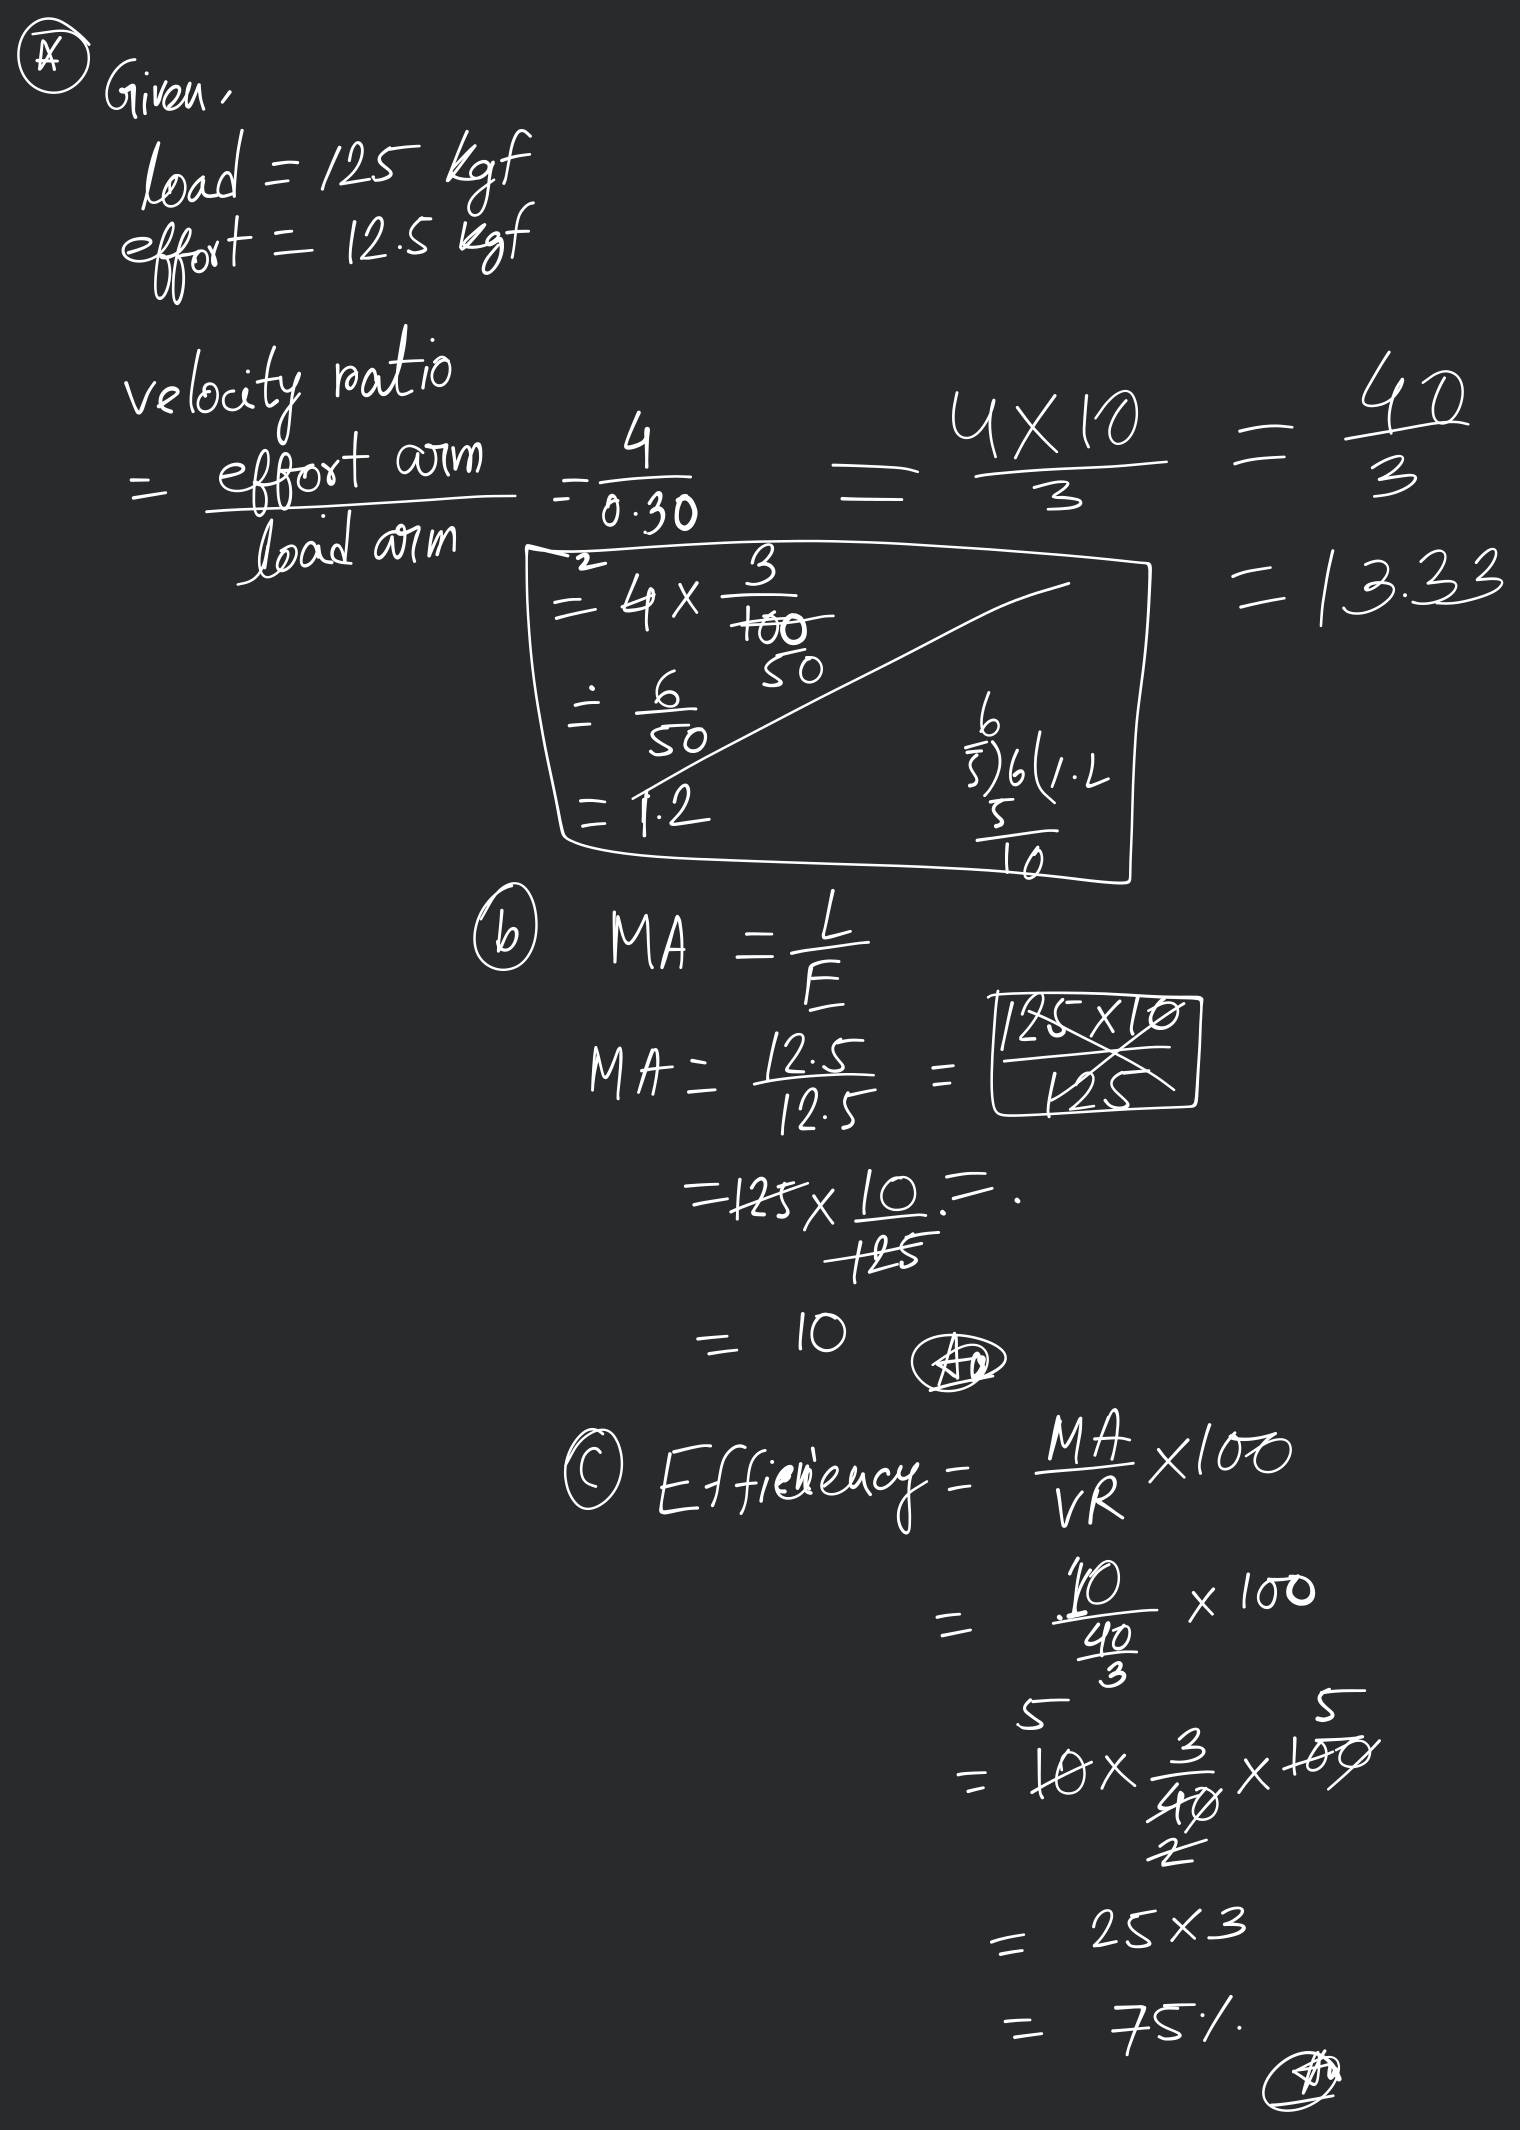 A
Given,
load = 125 kgf
effort = 12.5 kgf
velocity ratio
= effort arm / load arm = 4 / 0.30 = 4 × 10 / 3 = 40 / 3
= 13.33
2
= 4 × 3 / 100
50
= 6 / 50
= 1.2
6
5)6(1.2
5
10
b MA = L / E
MA = 12.5 / 12.5 = 125 × 10 / 125
= 125 × 10 / 125 =
= 10
c Efficiency = MA / VR × 100
= 10 / 40 / 3 × 100
5 5
= 10 × 3 / 40 × 100
2
= 25 × 3
= 75%